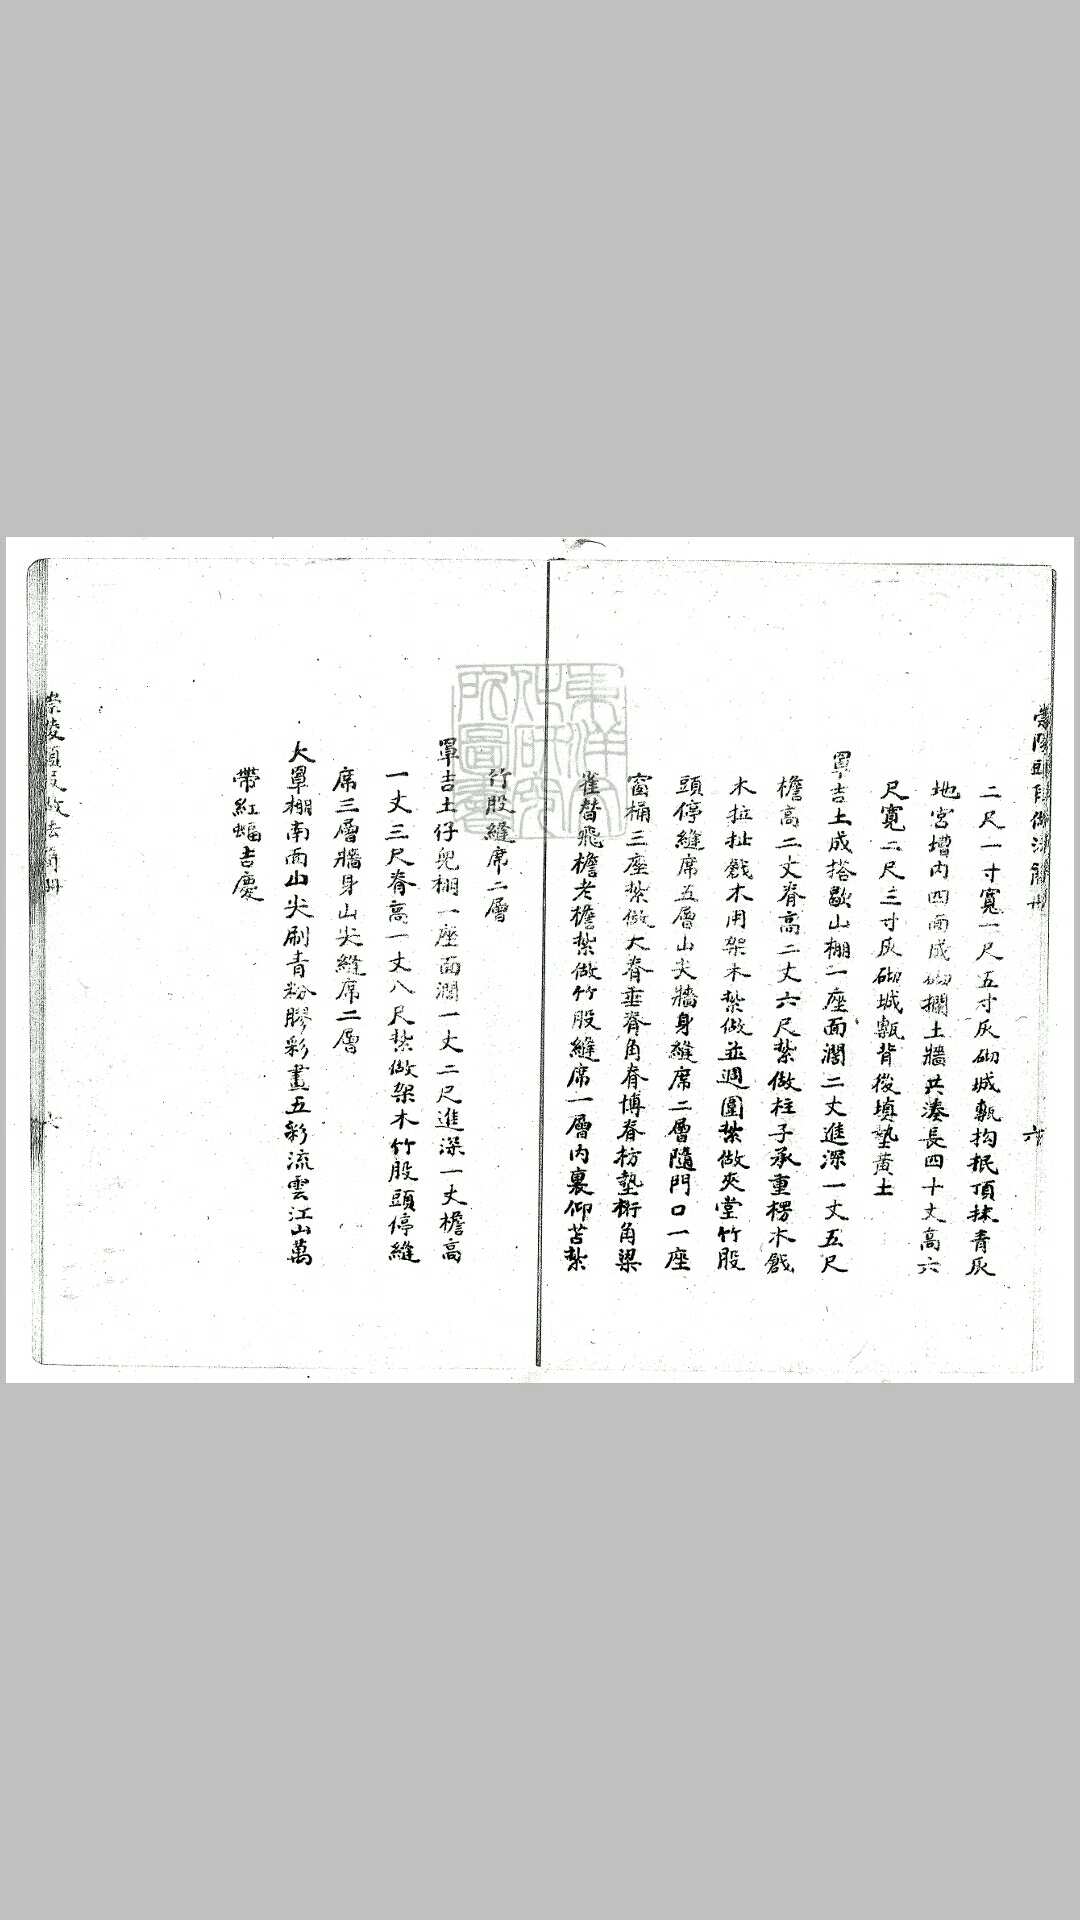 崇陵頭段做法簡冊
六
二尺一寸寬一尺五寸灰砌城甎抅抿頂抹青灰
地宮壙內四面成砌攔土牆共湊長四十丈高六
尺寬二尺三寸灰砌城甎背後填墊黃土
罩吉土成搭歇山棚一座面濶二丈進深一丈五尺
檐高二丈脊高二丈六尺紮做柱子承重楞木戧
木拉扯戧木用架木紮做並週圍紮做夾堂竹股
頭停縫席五層山尖牆身縫席二層隨門口一座
窗桶三座紮做大脊垂脊角脊博脊枋墊桁角梁
雀替飛檐老檐紮做竹股縫席一層內裏仰苫紮
竹股縫席二層
罩吉土仔兒棚一座面濶一丈二尺進深一丈檐高
一丈三尺脊高一丈八尺紮做架木竹股頭停縫
席三層牆身山尖縫席二層
大罩棚南面山尖刷青粉膠彩畫五彩流雲江山萬
帶紅蝠吉慶
崇陵頭段做法簡冊
東洋文化研究所圖書